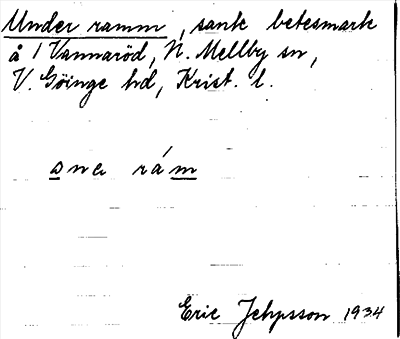 Under ramm, sank betesmark
å 1 Vannaröd, N. Mellby sn,
V. Göinge hd, Krist. l.
ɔnə rám
Eric Jepsson 1934